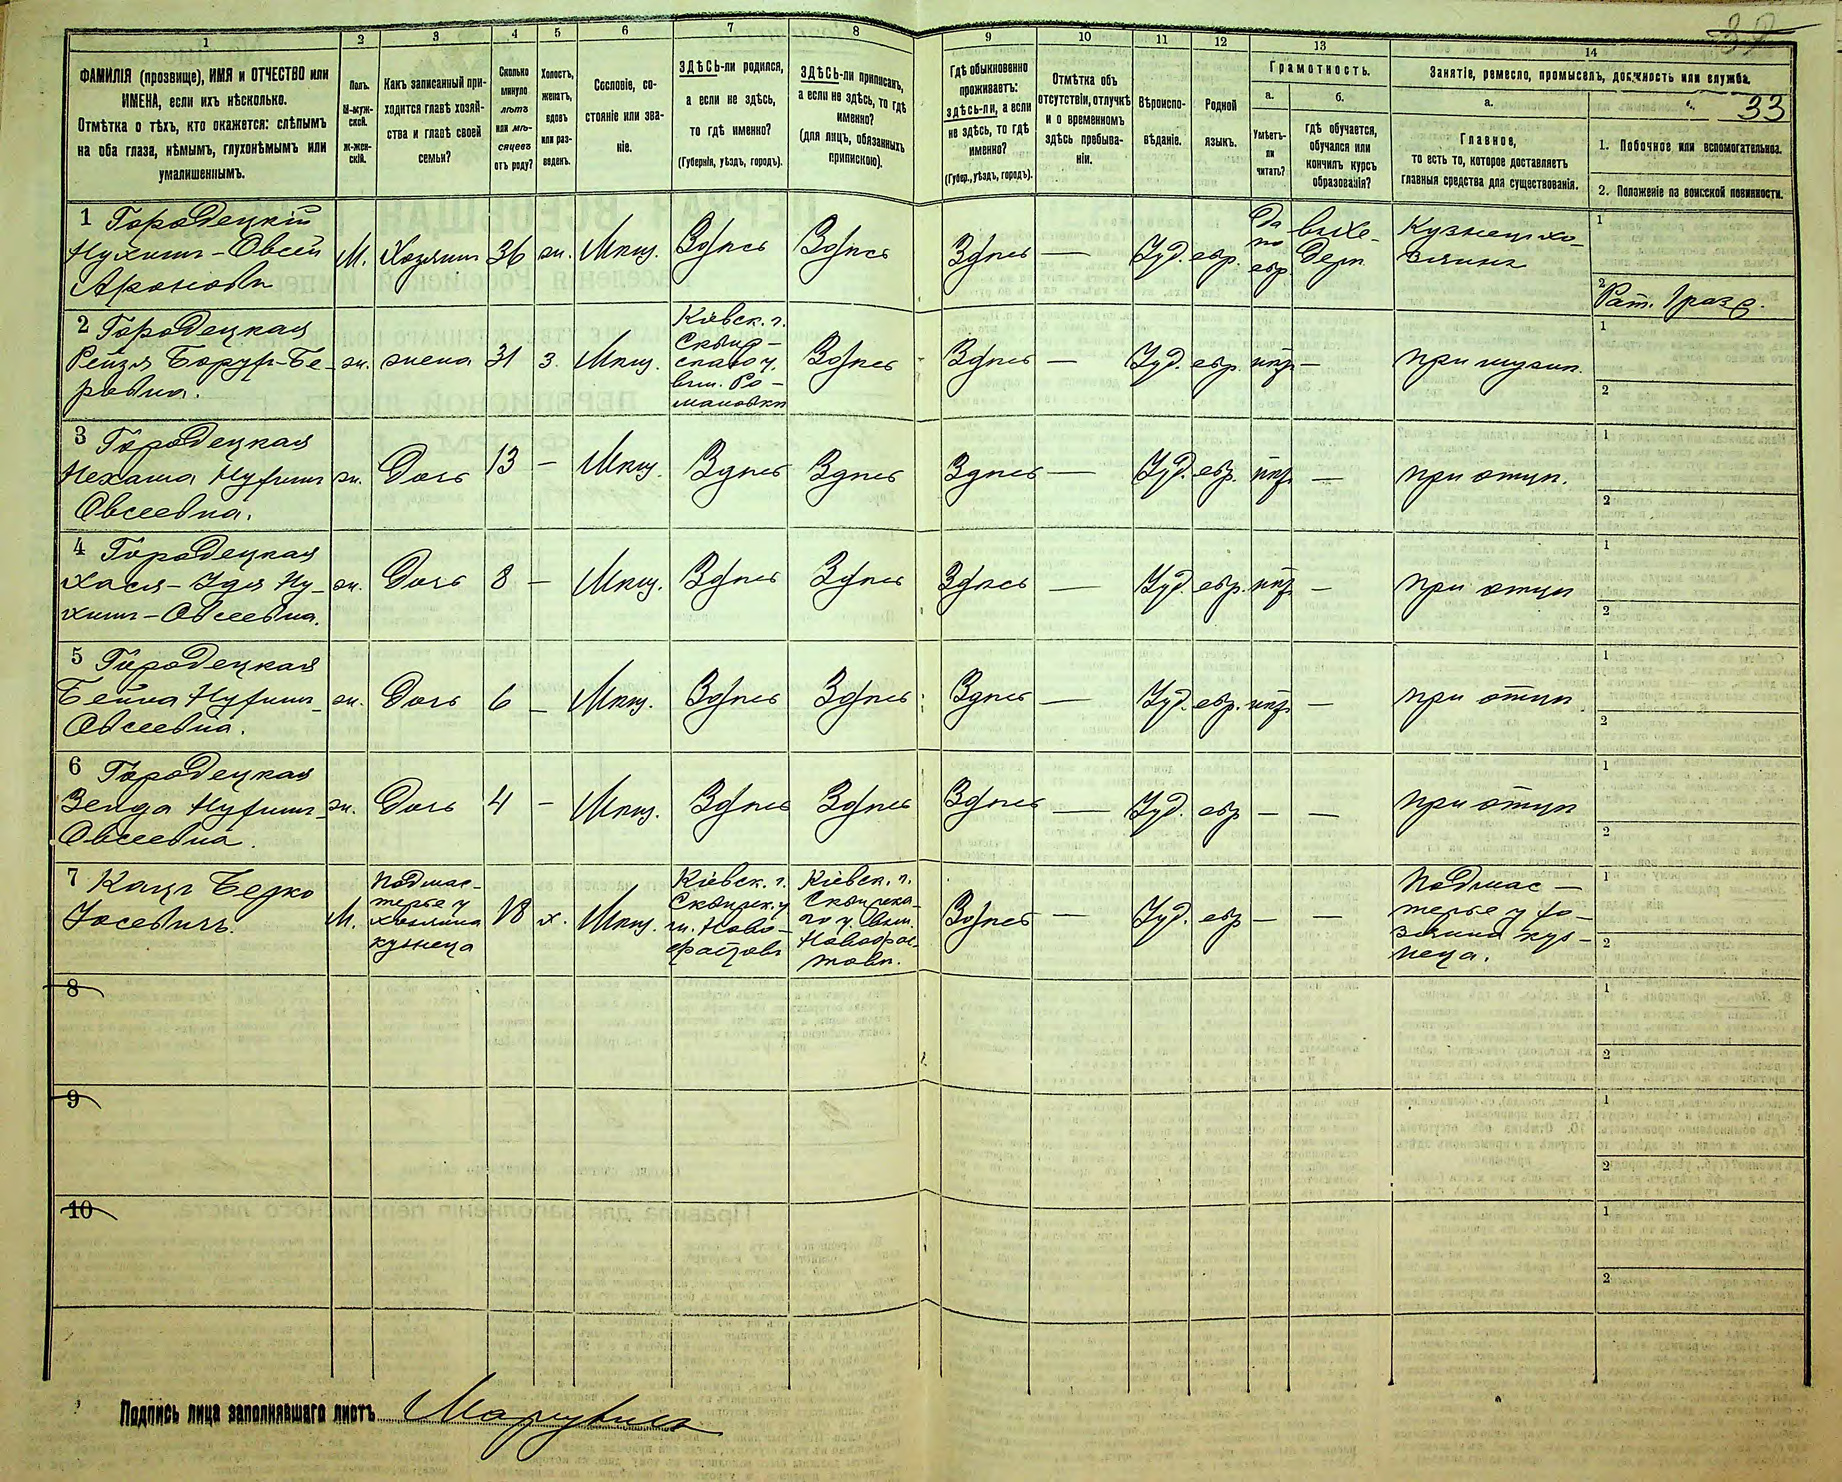 32
1 2 3 4 5 6 7 8 9 10 11 12 13 14
ФАМИЛІЯ (прозвище), ИМЯ и ОТЧЕСТВО или
ИМЕНА, если ихъ нѣсколько.
Отмѣтка о тѣхъ, кто окажется: слѣпымъ
на оба глаза, нѣмымъ, глухонѣмымъ или
умалишеннымъ.
Полъ.
М-муж-
ской.
Ж-жен-
скій.
Какъ записанный при-
ходится главѣ хозяй-
ства и главѣ своей
семьи?
Сколько
минуло
лѣтъ
или мѣ-
сяцевъ
отъ роду?
Холостъ,
женатъ,
вдовъ
или раз-
веденъ.
Сословіе, со-
стояніе или зва-
ніе.
ЗДѢСЬ-ли родился,
а если не здѣсь,
то гдѣ именно?
(Губернія, уѣздъ, городъ).
ЗДѢСЬ-ли приписанъ,
а если не здѣсь, то гдѣ
именно?
(для лицъ, обязанныхъ
припискою).
Гдѣ обыкновенно
проживаетъ:
здѣсь-ли, а если
не здѣсь, то гдѣ
именно?
(Губер., уѣздъ, городъ).
Отмѣтка объ
отсутствіи, отлучкѣ
и о временномъ
здѣсь пребыва-
ніи.
Вѣроиспо-
вѣданіе.
Родной
языкъ.
Грамотность.
а. б.
Умѣетъ-
ли
читать?
гдѣ обучается,
обучался или
кончилъ курсъ
образованія?
Занятіе, ремесло, промыселъ, должность или служба.
а. 33
Главное,
то есть то, которое доставляетъ
главныя средства для существованія.
1. Побочное или вспомогательное.
2. Положеніе по воинской повинности.
1 Городецкій
Нухимъ-Овсей
Ароновъ
М.
Хозяинъ
36
ж.
Мѣщ.
Здѣсь
Здѣсь
Здѣсь
—
Іуд.
евр.
Да
по
евр.
въ хе-
дерѣ
Кузнецъ хо-
зяинъ
1
2 Рат. 1 разр.
2 Городецкая
Рейзя Борух-Бе-
ровна.
ж.
жена
31
з.
Мѣщ.
Кіевск. г.
Сквир-
скаго у.
вм. Ро-
мановки
Здѣсь
Здѣсь
—
Іуд.
евр.
нѣтъ
—
при мужѣ.
1
2
3 Городецкая
Нехама Нухим
Овсеевна.
ж.
Дочь
13
—
Мѣщ.
Здѣсь
Здѣсь
Здѣсь
—
Іуд.
евр.
нѣтъ
—
при отцѣ.
1
2
4 Городецкая
Хася-Идя Ну-
химъ-Овсеевна.
ж.
Дочь
8
—
Мѣщ.
Здѣсь
Здѣсь
Здѣсь
—
Іуд.
евр.
нѣтъ
—
при отцѣ
1
2
5 Городецкая
Бейла Нухим-
Овсеевна.
ж.
Дочь
6
—
Мѣщ.
Здѣсь
Здѣсь
Здѣсь
—
Іуд.
евр.
нѣтъ
—
при отцѣ
1
2
6 Городецкая
Зелда Нухим-
Овсеевна.
ж.
Дочь
4
—
Мѣщ.
Здѣсь
Здѣсь
Здѣсь
—
Іуд.
евр
—
—
при отцѣ
1
2
7 Кацъ Берко
Іосевичъ.
М.
Подмас-
терье у
хозяина
кузнеца
18
х.
Мѣщ.
Кіевск. г.
Сквирск. у
м. Ново-
фастовъ
Кіевск. г.
Сквирска-
го у. вм.
Новофас-
товѣ.
Здѣсь
—
Іуд.
евр
—
—
Подмас-
терье у хо-
зяина куз-
неца.
1
2
8
1
2
9
1
2
10
1
2
Подпись лица заполнявшаго листъ